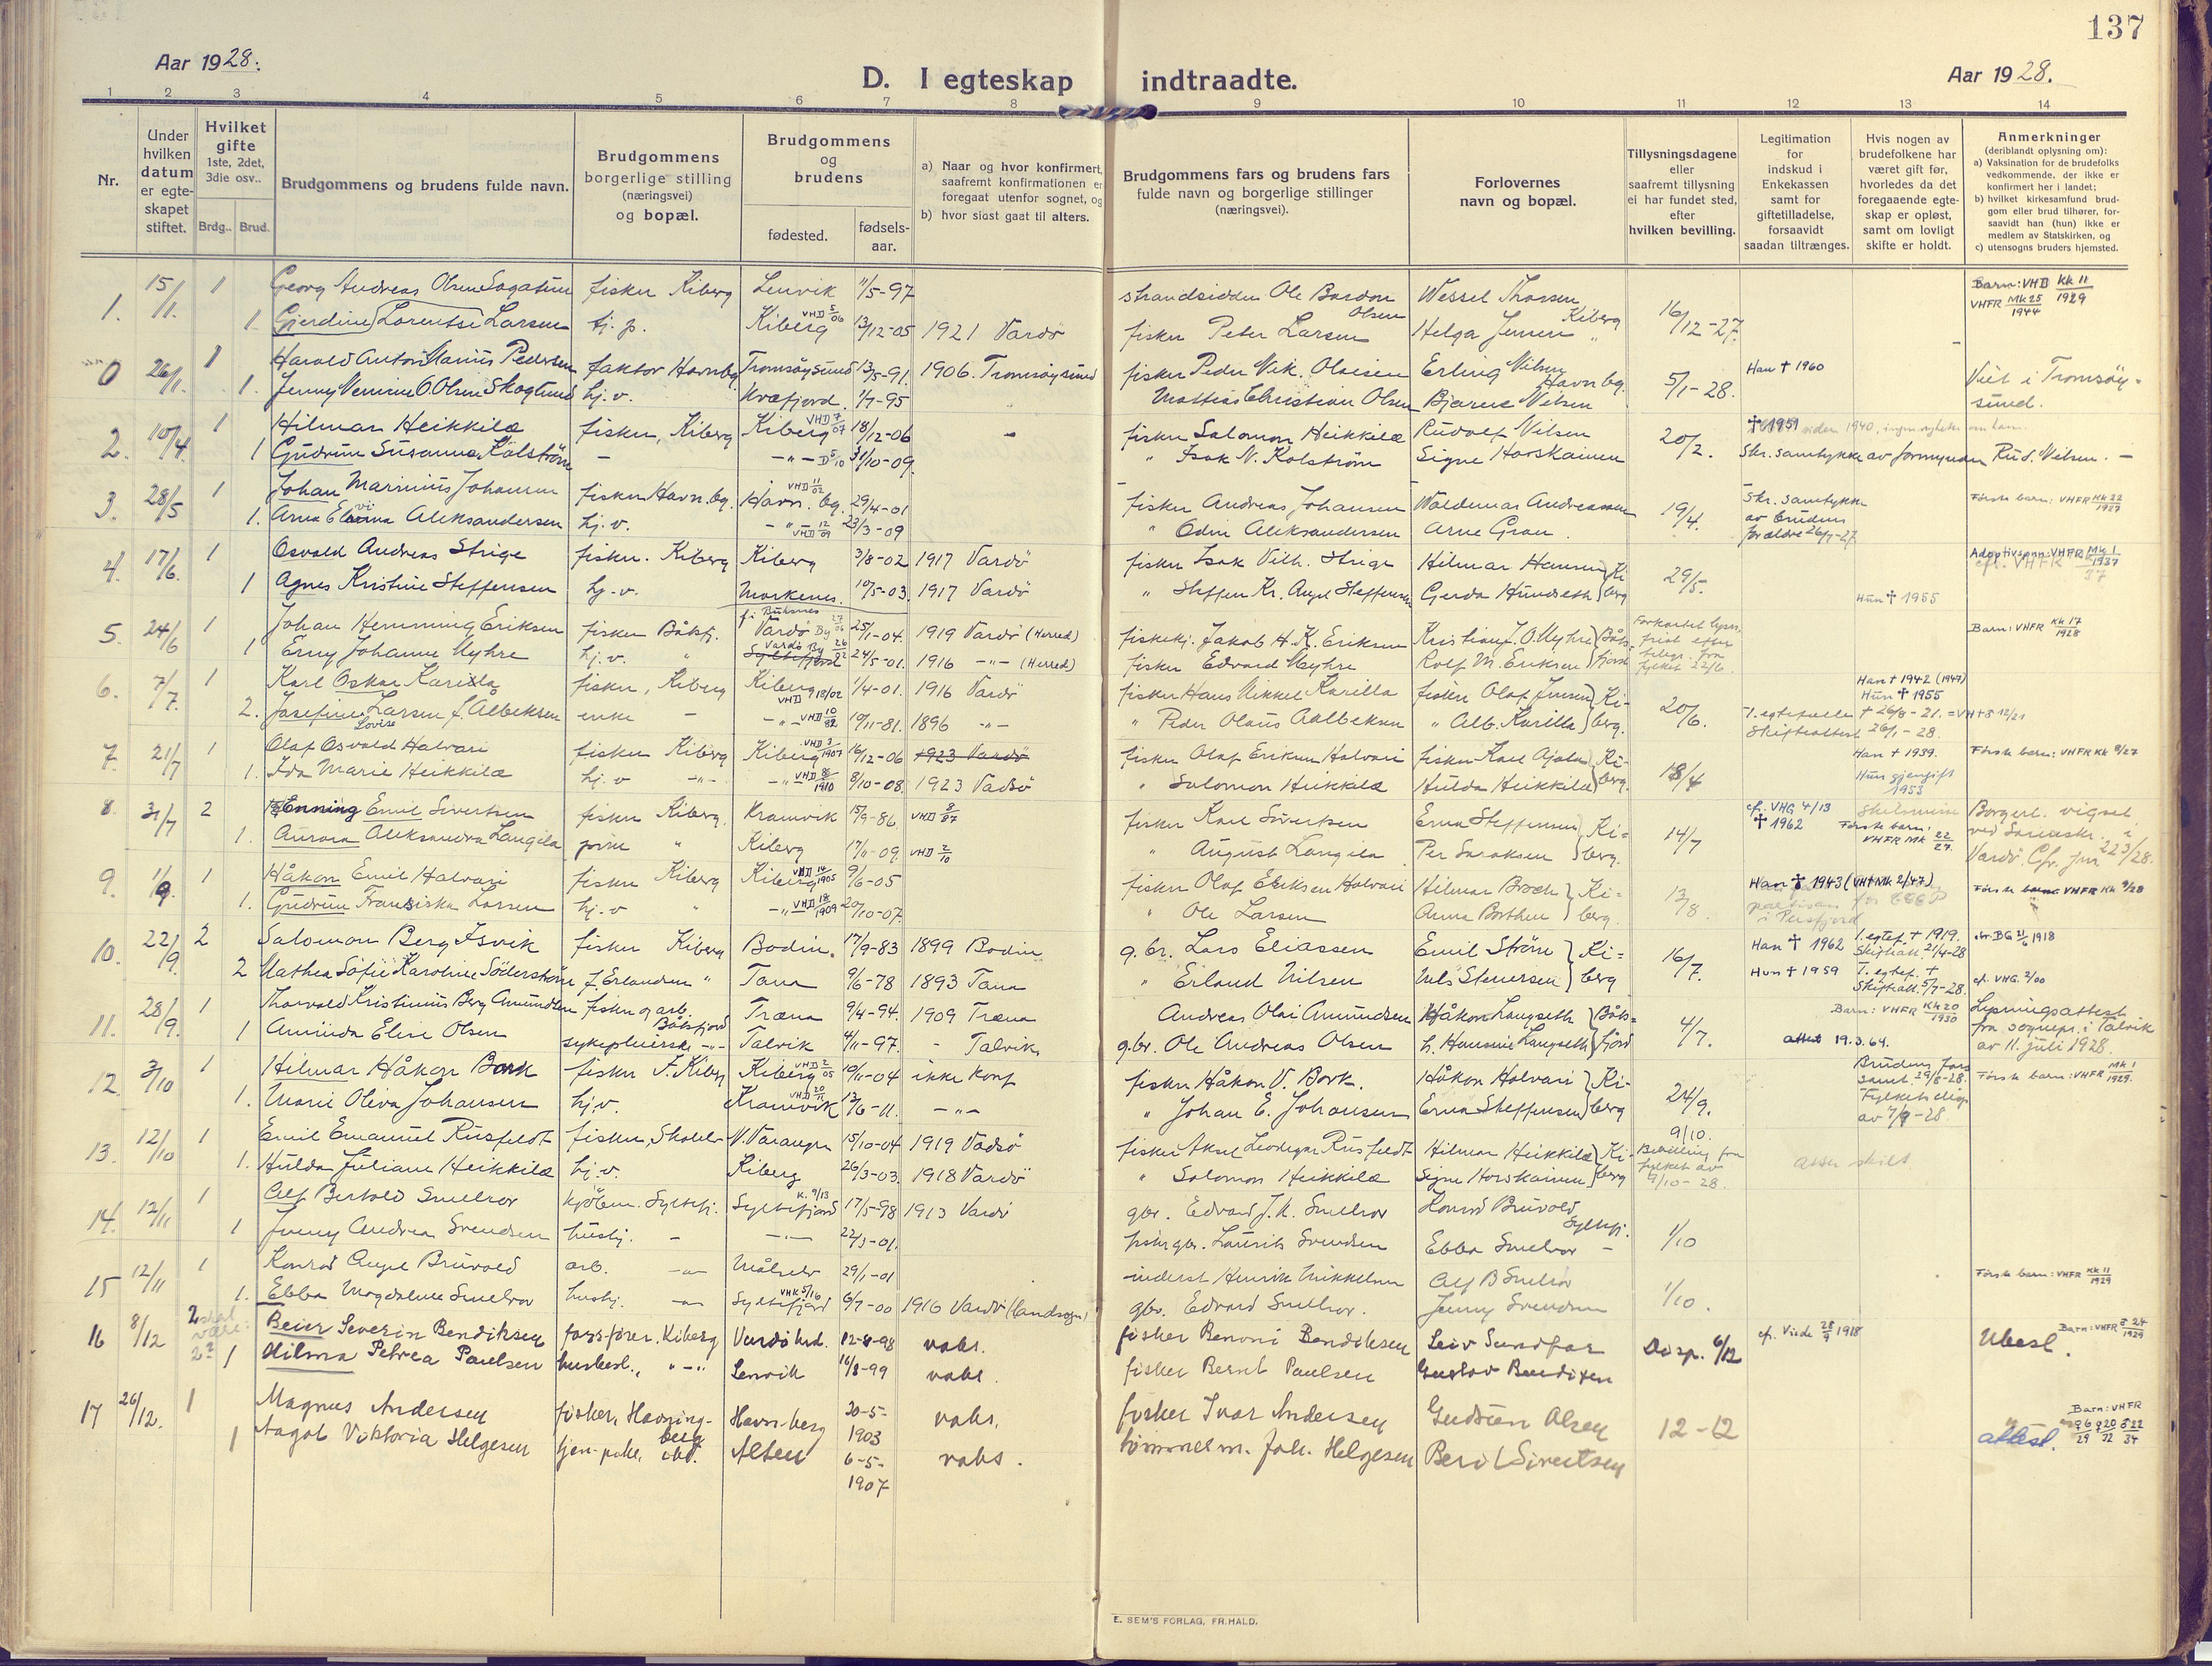 137
Aar 1928.
D. I egteskap indtraadte.
Aar 1928.
1 2 3 4 5 6 7 8 9 10 11 12 13 14
Nr.
Under hvilken datum er egteskapet stiftet.
Hvilket gifte 1ste, 2det, 3die osv..
Brdg.. Brud.
Brudgommens og brudens fulde navn.
Brudgommens borgerlige stilling (næringsvei) og bopæl.
Brudgommens og brudens
fødested.
fødsels-aar.
a) Naar og hvor konfirmert, saafremt konfirmationen er foregaat utenfor sognet, og
b) hvor sidst gaat til alters.
Brudgommens fars og brudens fars fulde navn og borgerlige stillinger (næringsvei).
Forlovernes navn og bopæl.
Tillysningsdagene eller saafremt tillysning ei har fundet sted, efter hvilken bevilling.
Legitimation for indskud i Enkekassen samt for giftetilladelse, forsaavidt saadan tiltrænges.
Hvis nogen av brudefolkene har været gift før, hvorledes da det foregaaende egteskap er opløst, samt om lovligt skifte er holdt.
Anmerkninger (deriblandt oplysning om):
a) Vaksination for de brudefolks vedkommende, der ikke er konfirmert her i landet;
b) hvilket kirkesamfund brudgom eller brud tilhører, forsaavidt han (hun) ikke er medlem av Statskirken, og
c) utensogns bruders hjemsted.
1. 15/1 1 Georg Andreas Olsen Sagatun fisker Kiberg Lenvik 11/5-97 strandsidder Ole Bardon Olsen Wessel Thorsen Kiberg 16/12-27. Barn: VHD Kk 11/1929 VHFR Mk 25/1944
1 Gjerdine Lorentse Larsen tj. p. Kiberg VHD 5/06 13/12-05 1921 Vardö fisker Peter Larsen Helga Jensen "
0 26/1. 1 Harald Anton Marius Pedersen faktor Havnbg. Tromsöysund 13/5-91. 1906. Tromsöysund fisker Peder Nik. Olaisen Erling Nilsen Havnbg. 5/1-28. Han † 1960 Viet i Tromsöysund.
1. Jenny Vernine O. Olsen Skoglund hj. v. Kvæfjord. 1/7-95 Mathias Christian Olsen Bjarne Nilsen
2. 10/4. 1 Hilmar Heikkilæ fisker, Kiberg Kiberg VHD 7/07 18/12-06 - fisker Salomon Heikkilæ Rudolf Nilsen 20/2. † 1951
1 Gudrun Susanna Kolström - -"- D 5/10 31/10-09. " Isak N. Kolström Signe Horskainen Skr. samtykke av formynder Rud. Nilsen. -
3. 28/5 1 Johan Marinius Johansen fisker Havn.bg. Havn.bg. VHD 11/02 29/4-01 fisker Andreas Johansen Waldemar Andreassen 19/4. Skr. samtykke av brudens forældre 26/7-27 Förste barn: VHFR Kk 22/1929
1. Aleksandersen hj. v. -"- VHD 12/09 23/3-09 " Odin Aleksandersen Arne Gran.
4. 17/6. 1 Osvald Andreas Strige fisker. Kiberg Kiberg 3/8-02 1917 Vardö fisker Isak Vilh. Strige Hilmar Hansen Kiberg 29/5. Adoptivsønn: VHFR Mk 1/1937
1 Agnes Kristine Steffensen hj. v. 10/5-03. 1917 Vardö " Steffen Kr. Angel Steffensen Gerda Hunseth Hun † 1955
5. 24/6 1 Johan Hemming Eriksen fisker Båtsfj. Vardö By 25/1-04. 1919 Vardö (Herred) fiskerhj. Jakob H. K. Eriksen Kristian J. O. Myhre Båtsfjord Barn: VHFR Kk 17/1928
1 Erny Johanne Myhre hj. v. " Vardö By Syltefjord 24/5-01. 1916 -"- (Herred) fisker Edvard Myhre Rolf M. Eriksen
6. 7/7. 1 Karl Oskar Karilla fisker, Kiberg Kiberg VHD 18/02 1/4-01. 1916 Vardö fisker Hans Nikkel Karilla fisker Olaf Jensen Kiberg. 20/6. Han † 1942 (1947) Hun † 1955
2. Josefine Lovise Larsen f. Albeksen enke - -"- VHD 10/82 10/11-81. 1896 -"- " Peder Olaus Aalbeksen " Alb. Karilla 1. egtefælle † 26/8-21. = VHFS 12/21 Skifteattest 26/1-28.
7. 21/7 1 Olaf Osvald Halvari fisker Kiberg Kiberg VHD 3/1907 16/12-06 1923 Vardö fisker Olaf Eriksen Halvari fisker Karl Ajala Kiberg. 18/4 Han † 1939. Förste barn: VHFR Kk 8/27
1. Ida Marie Heikkilæ hj. v -"- -"- VHD 8/1910 8/10-08. 1923 Vadsö " Salomon Heikkilæ Hulda Heikkilæ Hun gjengift 1953
8. 31/7 2 Henning Emil Sivertsen fisker Kiberg. Kramvik 15/9-86. VHD 8/87 fisker Karl Sivertsen Erna Steffensen Kiberg. 14/7 cf. VHG 4/13 † 1962 Skilsmisse Förste barn: VHFR Mk 22/27. Borgerl. vigsel ved Sorenskr. i Vardö. Cfr. jnr 223/28.
1. Aurora Aleksandra Langila pike " Kiberg 17/11-09. VHD 2/10 " August Langila Per Saraksen
9. 1/9. 1 Håkon Emil Halvari fisker Kiberg Kiberg VHD 14/1905 9/6-05 fisker Olaf Eriksen Halvari Hilmar Bock Kiberg. 13/8. Han † 1943 (VHFMk 2/47) partisan i Persfjord Förste barn VHFR Kk 9/28
1. Gudrun Fransiska Larsen hj. v " -"- VHD 18/1909 20/10-07. " Ole Larsen Anna Borthen
10. 22/9. 2 Salomon Berg Isvik fisker Kiberg Bodin. 17/9-83 1899 Bodin g. br. Lars Eliassen Emil Ström Kiberg 16/7. Han † 1962 1. egtef. † 1919. Skifteatt. 21/4-28
2 Mathea Sofie Karoline Söderström f. Erlandsen " Tana 9/6-78 1893 Tana " Erland Nilsen Nils Stenersen Hun † 1959 1. egtef. † Skifteatt. 5/7-28. cf. VHG. 2/00
11. 28/9. 1 Thorvald Kristinius Berg Amundsen fisker og arb. Båtsfjord Træna 9/4-94. 1909 Træna Andreas Olai Amundsen Håkon Langseth Båtsfjord 4/7. Barn: VHFR Kk 20/1930 Lysningsattest fra sognepr. i Talvik av 11. juli 1928.
1 Amunda Elise Olsen sykepleierske -"- Talvik 4/11-97. - Talvik g. br. Ole Andreas Olsen h. Hansine Langseth attest 19.3.64.
12. 3/10 1 Hilmar Håkon Bork fisker F. Kiberg Kiberg VHD 2/05 10/11-04 ikke konf fisker Håkon V. Bork. Håkon Halvari Kiberg 24/9. Brudens fars samt. 29/8-28. Förste barn: VHFR Mk 1/1929.
1. Marie Oliva Johansen hj. v. Kramvik VHD 20/11 13/6-11. -"- " Johan E. Johansen Erna Steffensen
13. 12/10 1 Emil Emanuel Rusfeldt fisker, N. Varanger 15/10-04 1919 Vadsö fisker Aksel Leodegar Rusfeldt Hilmar Heikkilæ Kiberg 9/10. Bevilling fra fylket av 9/10-28.
1. Hulda Juliane Heikkilæ hj. v. Kiberg 26/3-03. 1918 Vardö " Salomon Heikkilæ Signe Horskainen atter skilt
14. 12/11 1 Alf Bertold Smelror Syltefj. Syltefjord K. 9/13 17/5-98 1913 Vardö gbr. Edvard J. K. Smelror Konrad Bruvold Syltefj. 1/10
1 Jenny Andrea Svendsen husbj. - -"- 22/3-01. gbr. Laurits Svendsen Ebba Smelror -
15 12/11 1 Konrad Angel Bruvold arb. -"- Målselv 29/1-01 inderst Henrik Mikkelsen Alf B Smelror 1/10. Förste barn: VHFR Kk 11/1929
1. Ebba Magdalene Smelror husbj. -"- Syltefjord VHK 5/16 6/7-00 1916 Vardö (landsogn) gbr. Edvard Smelror. Jenny Svendsen
16 8/12 2 skal være: Beier Severin Bendiksen fors.fører. Kiberg Vardö hrd. 12-8-98 vabs. fisker Benoni Bendiksen Leiv Sundfær Disp. 6/12 cf. Viede 28/9 1918 Ubesl. Barn: VHFR 5 24/1929
2? 1 Hilma Petrea Paulsen husbest., "-" Lenvik 16/8-99 vabs. fisker Bernt Paulsen Gustav Bendixen
17 26/12. 1 Magnus Andersen fisker, Havningberg Havn-berg 20-5-1903 vabs. fisker Ivar Andersen Gudrun Olsen 12-12 attest. Barn: VHFR
1 Aagot Viktoria Helgesen tjen.pike, ibd. Alten 6-5-1907 vabs. tømmerm. Joh. Helgesen Berit Sivertsen
E. SEM'S FORLAG, FR.HALD.